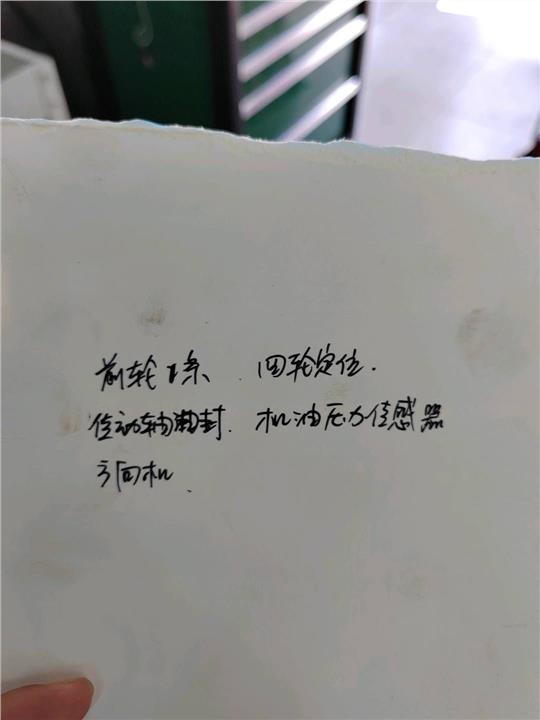 前轮1条 四轮定位.
传动轴油封. 机油压力传感器
方向机.